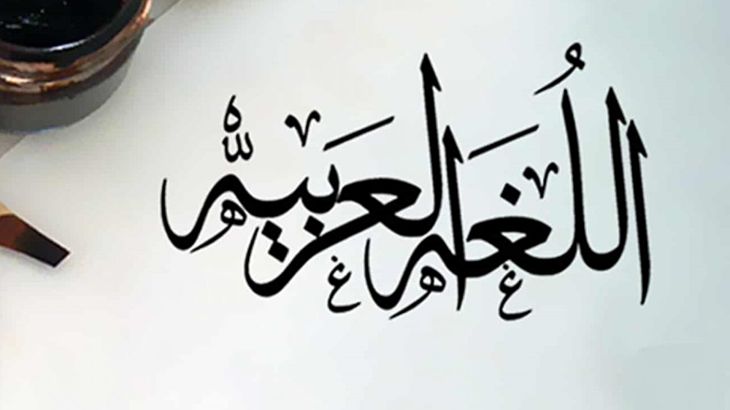 اللُغَة العَرَبيّة